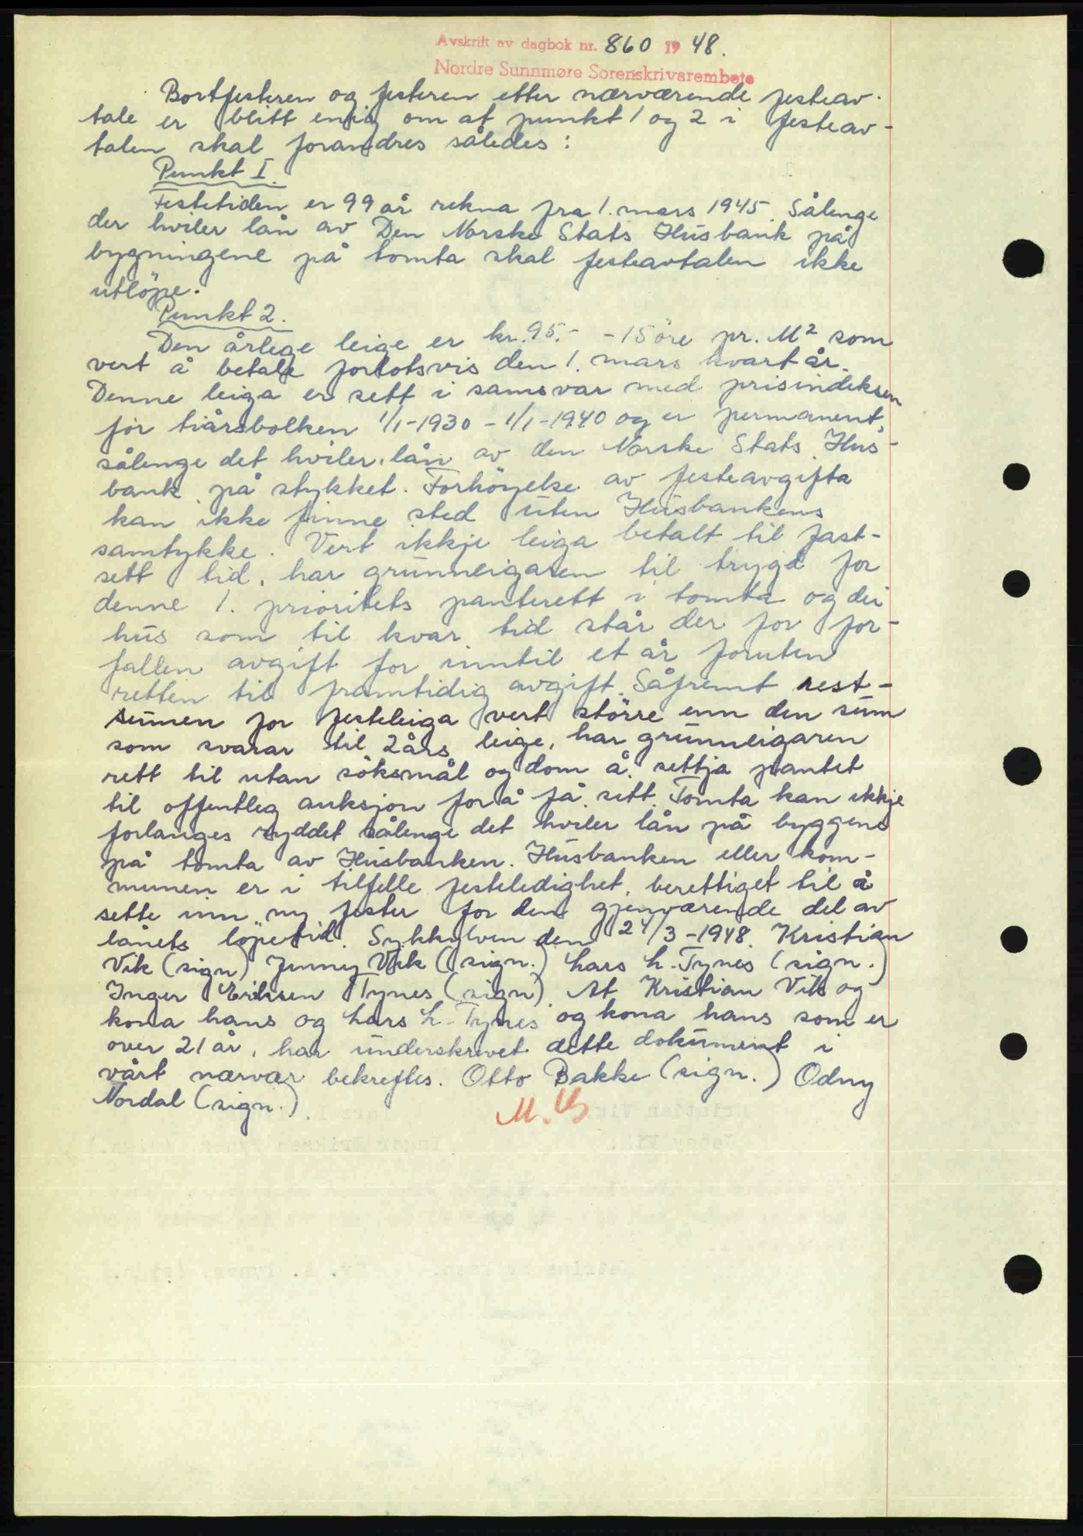 Avskrift av dagbok nr. 860 1948.
Nordre Sunnmøre Sorenskrivarembete
Bortfesteren og festeren etter nærværende festeav-
tale er blitt enig om at punkt 1 og 2 i festeav-
talen skal forandres således:
Punkt I.
Festetiden er 99 år rekna fra 1. mars 1945. Sålenge
der hviler lån av Den Norske Stats Husbank på
bygningene på tomta skal festeavtalen ikke
utløpe.
Punkt 2.
Den årlege leige er kr. 95.- - 15 öre pr. M² som
vert å betale forlotsvis den 1. mars kvart år.
Denne leiga er sett i samsvar med prisindeksen
for tiårsbolken 1/1-1930 - 1/1-1940 og er permanent,
sålenge det hviler lån av den Norske Stats Hus-
bank på stykket. Forhöyelse av festeavgifta
kan ikke finne sted uten Husbankens
samtykke. Vert ikkje leiga betalt til fast-
sett tid, har grunneigaren til trygd for
denne 1. prioritets panterett i tomta og dei
hus som til kvar tid står der for for-
fallen avgift for inntil et år foruten
retten til framtidig avgift. Såfremt rest-
sumen for festeleiga vert större enn den sum
som svarar til 2 års leige, har grunneigaren
rett til utan söksmål og dom å settja pantet
til offentleg auksjon for å få sitt. Tomta kan ikkje
forlanges ryddet sålenge det hviler lån på byggene
på tomta av Husbanken. Husbanken eller kom-
munen er i tilfelle festeledighet, berettiget til å
sette inn ny fester for den gjenværende del av
lånets löpetid. Sykkylven den 24/3-1948. Kristian
Vik (sign) Jenny Vik (sign.) Lars L. Tynes (sign.)
Inger Eriksen Tynes (sign). At Kristian Vik og
kona hans og Lars L. Tynes og kona hans som er
over 21 år, har underskrevet dette dokument i
vårt nærvær bekreftes. Otto Bakke (sign.) Odny
Nordal (sign.).